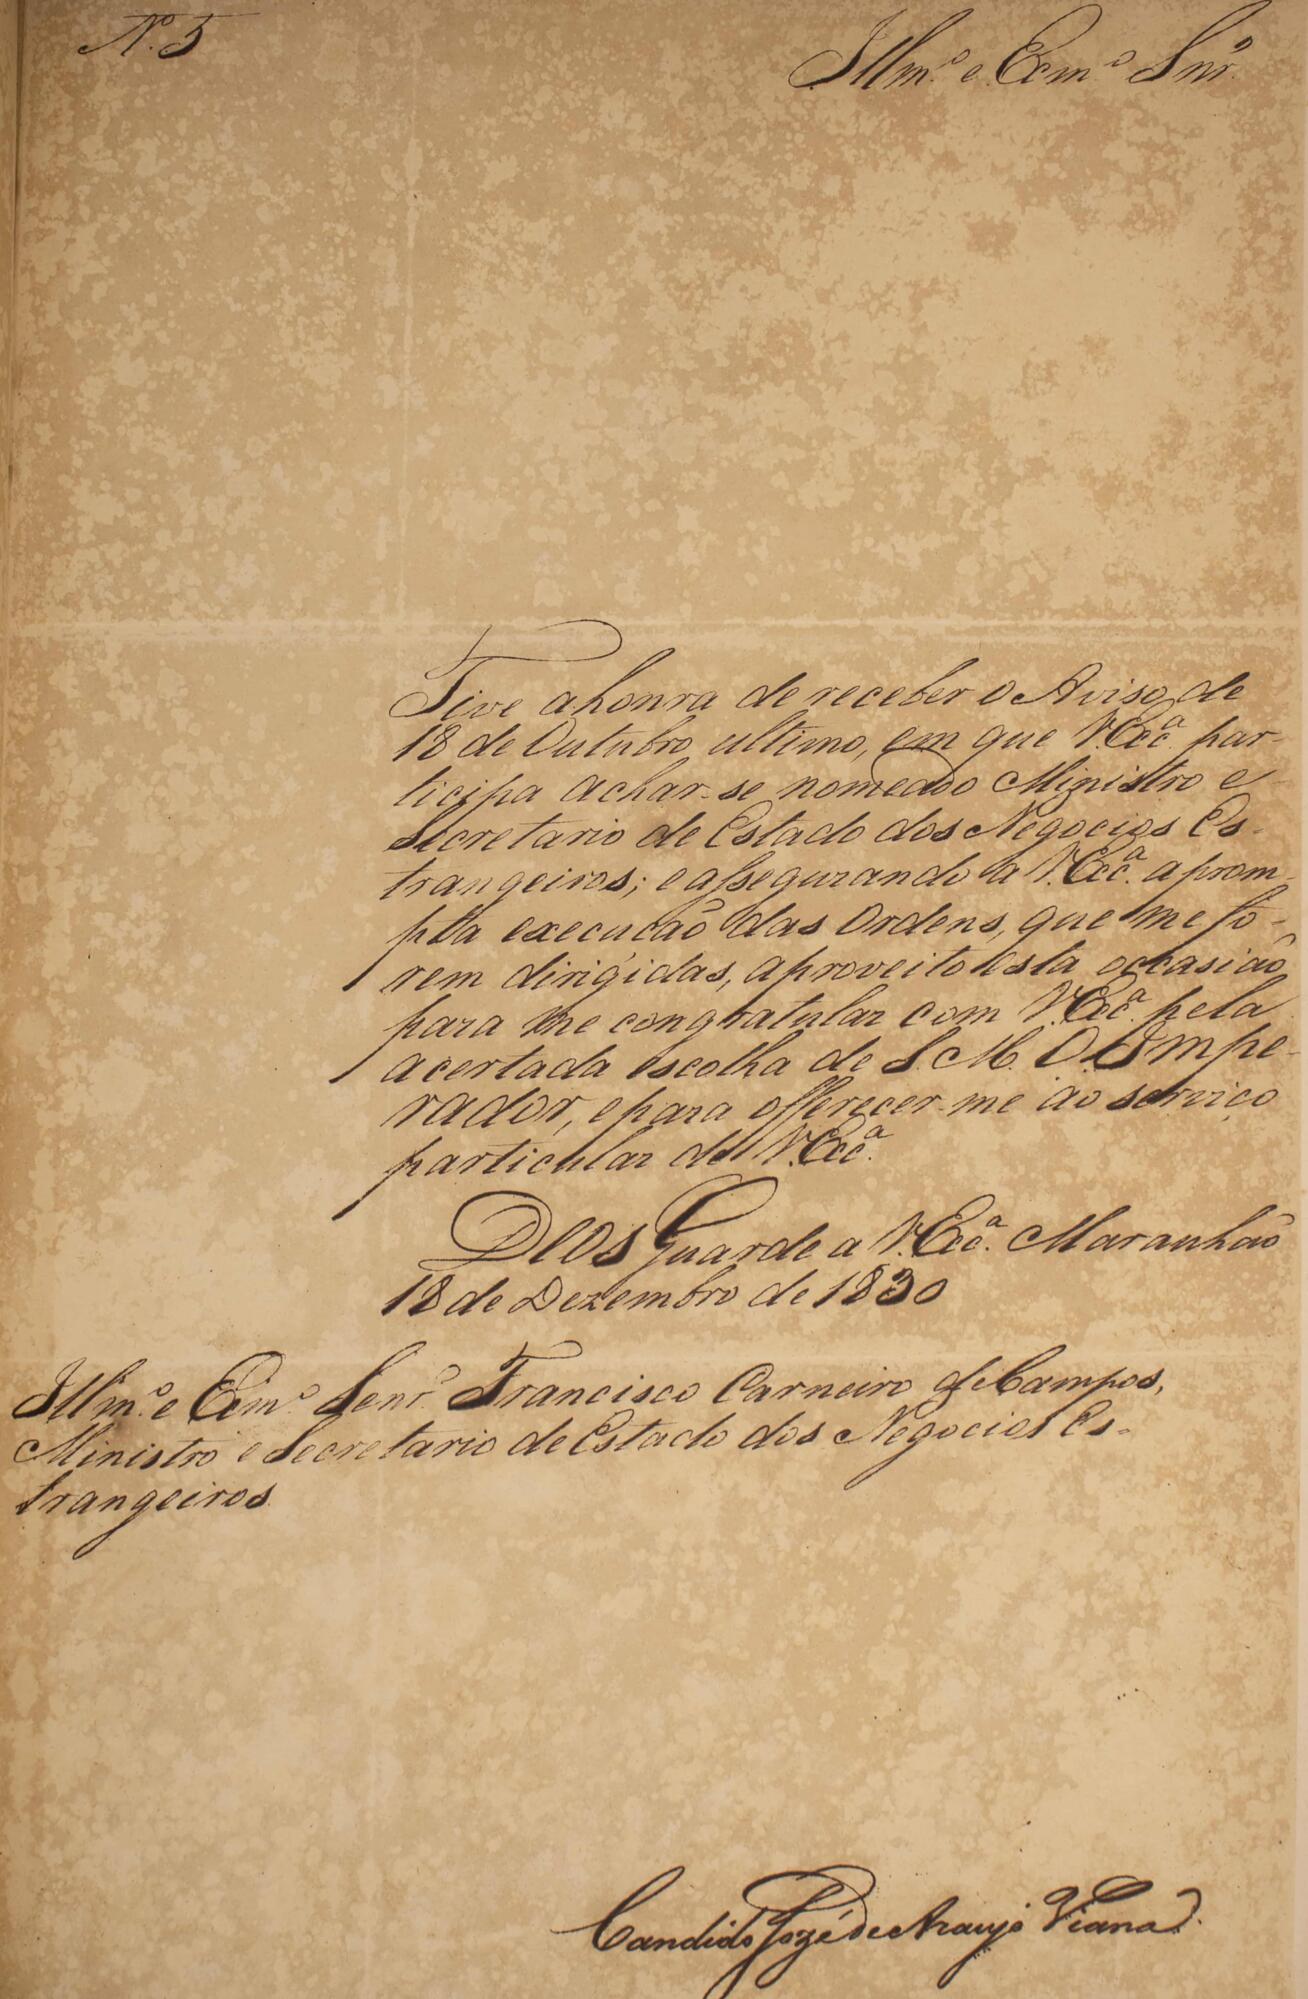 N.º 5
Illm.º e Excm.º Snr.
Tive a honra de receber o Aviso de
18 de Outubro ultimo, em que V. Exc.ª par-
ticipa achar-se nomeado Ministro e
Secretario de Estado dos Negocios Es-
trangeiros; e assegurando a V. Exc.ª a prom-
pta execução das Ordens, que me fo-
rem dirigidas, aproveito esta occasião
para me congratular com V. Exc.ª pela
acertada escolha de S. M. O Impe-
rador, e para offerecer-me ao serviço
particular de V. Exc.ª
Deos Guarde a V. Exc.ª Maranhão
18 de Dezembro de 1830
Illm.º e Exm.º Senr. Francisco Carneiro de Campos,
Ministro e Secretario de Estado dos Negocios Es-
trangeiros
Candido José de Araujo Vianna